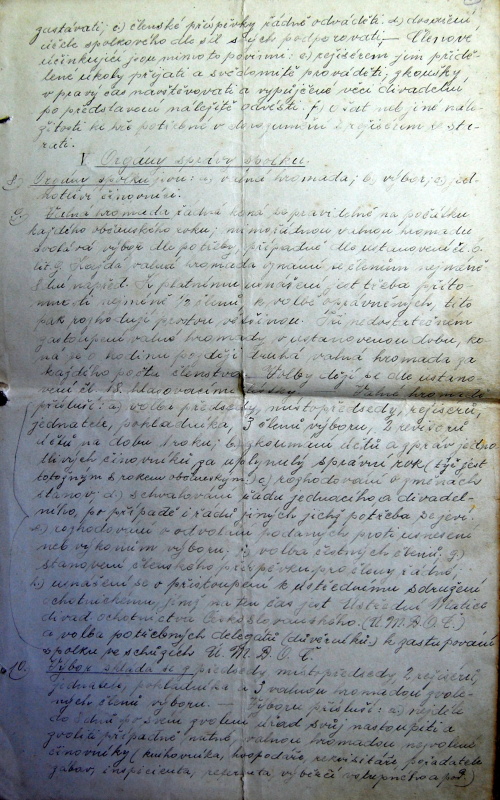 zastávati; c) členské příspěvky řádně odváděti; d) dosažení
účele spolkového dle sil svých podporovati. — Členové
účinkující jsou mimo to povinni: e) režisérem jim přidě-
lené úkoly přijati a svědomitě prováděti, zkoušky
v pravý čas navštěvovati a vypůjčené věci divadelní
po představení náležitě odvésti. f) šat neb jiné nále-
žitosti ke hře potřebné v dorozumění s režisérem si sta-
rati.
V. Orgány správy spolku.
8.) Orgány spolku jsou: a) valná hromada; b) výbor; c) jed-
notliví činovníci.
9.) Valná hromada řádná koná se pravidelně na počátku
každého občanského roku; mimořádnou valnou hromadu
svolává výbor dle potřeby, případně dle ustanovení čl.
Každá valná hromada oznámí se členům nejméně
8 dní napřed. Ku platnému usnášení jest třeba přítom-
nosti nejméně 1/2 členů k volbě oprávněných, tito
pak rozhodují prostou většinou. Při nedostatečném
zastoupení valné hromady v ustanovenou dobu, ko-
ná se o hodinu později druhá valná hromada za
každého počtu členstva. Volby dějí se dle ustano-
vení čl. 18. hlasovacími lístky. — Valné hromadě
přísluší: a) volba předsedy, místopředsedy, režisérů,
jednatele, pokladníka, 3 členů výboru, 2 revisorů
účtů na dobu 1 roku; b) zkoumání účtů a zpráv jedno-
tlivých činovníků za uplynulý správní rok (týž jest
totožným s rokem občanským) c) rozhodování o změnách
stanov; d) schvalování řádu jednacího a divadel-
ního, po případě i řádů jiných jichž potřeba se jeví.
e) rozhodování o odvolání podaných proti usnesení
neb výkonům výboru; f) volba čestných členů; g)
stanovení členského příspěvku pro členy řádné;
h) usnášení se o přistoupení k ústřednímu sdružení
ochotnickému, jímž na ten čas jest Ústřední Matice
divad. ochotnictva Československého. (Ú. M. D. O. Č.)
a volba potřebných delegátů (důvěrníků) k zastupování
spolku ve schůzích Ú. M. D. O. Č.
10. Výbor skládá se z předsedy, místopředsedy, 2 režisérů,
jednatele, pokladníka a 3 valnou hromadou zvole-
ných členů výboru. — Výboru přísluší: a) nejdéle
do 8 dnů po svém zvolení úřad svůj nastoupiti a
zvoliti případné nutné, valnou hromadou nezvolené
činovníky (knihovníka, hospodáře, rekvisitáře, pořadatele
zábav, inspicienta, výběrčí vstupného a pod.)